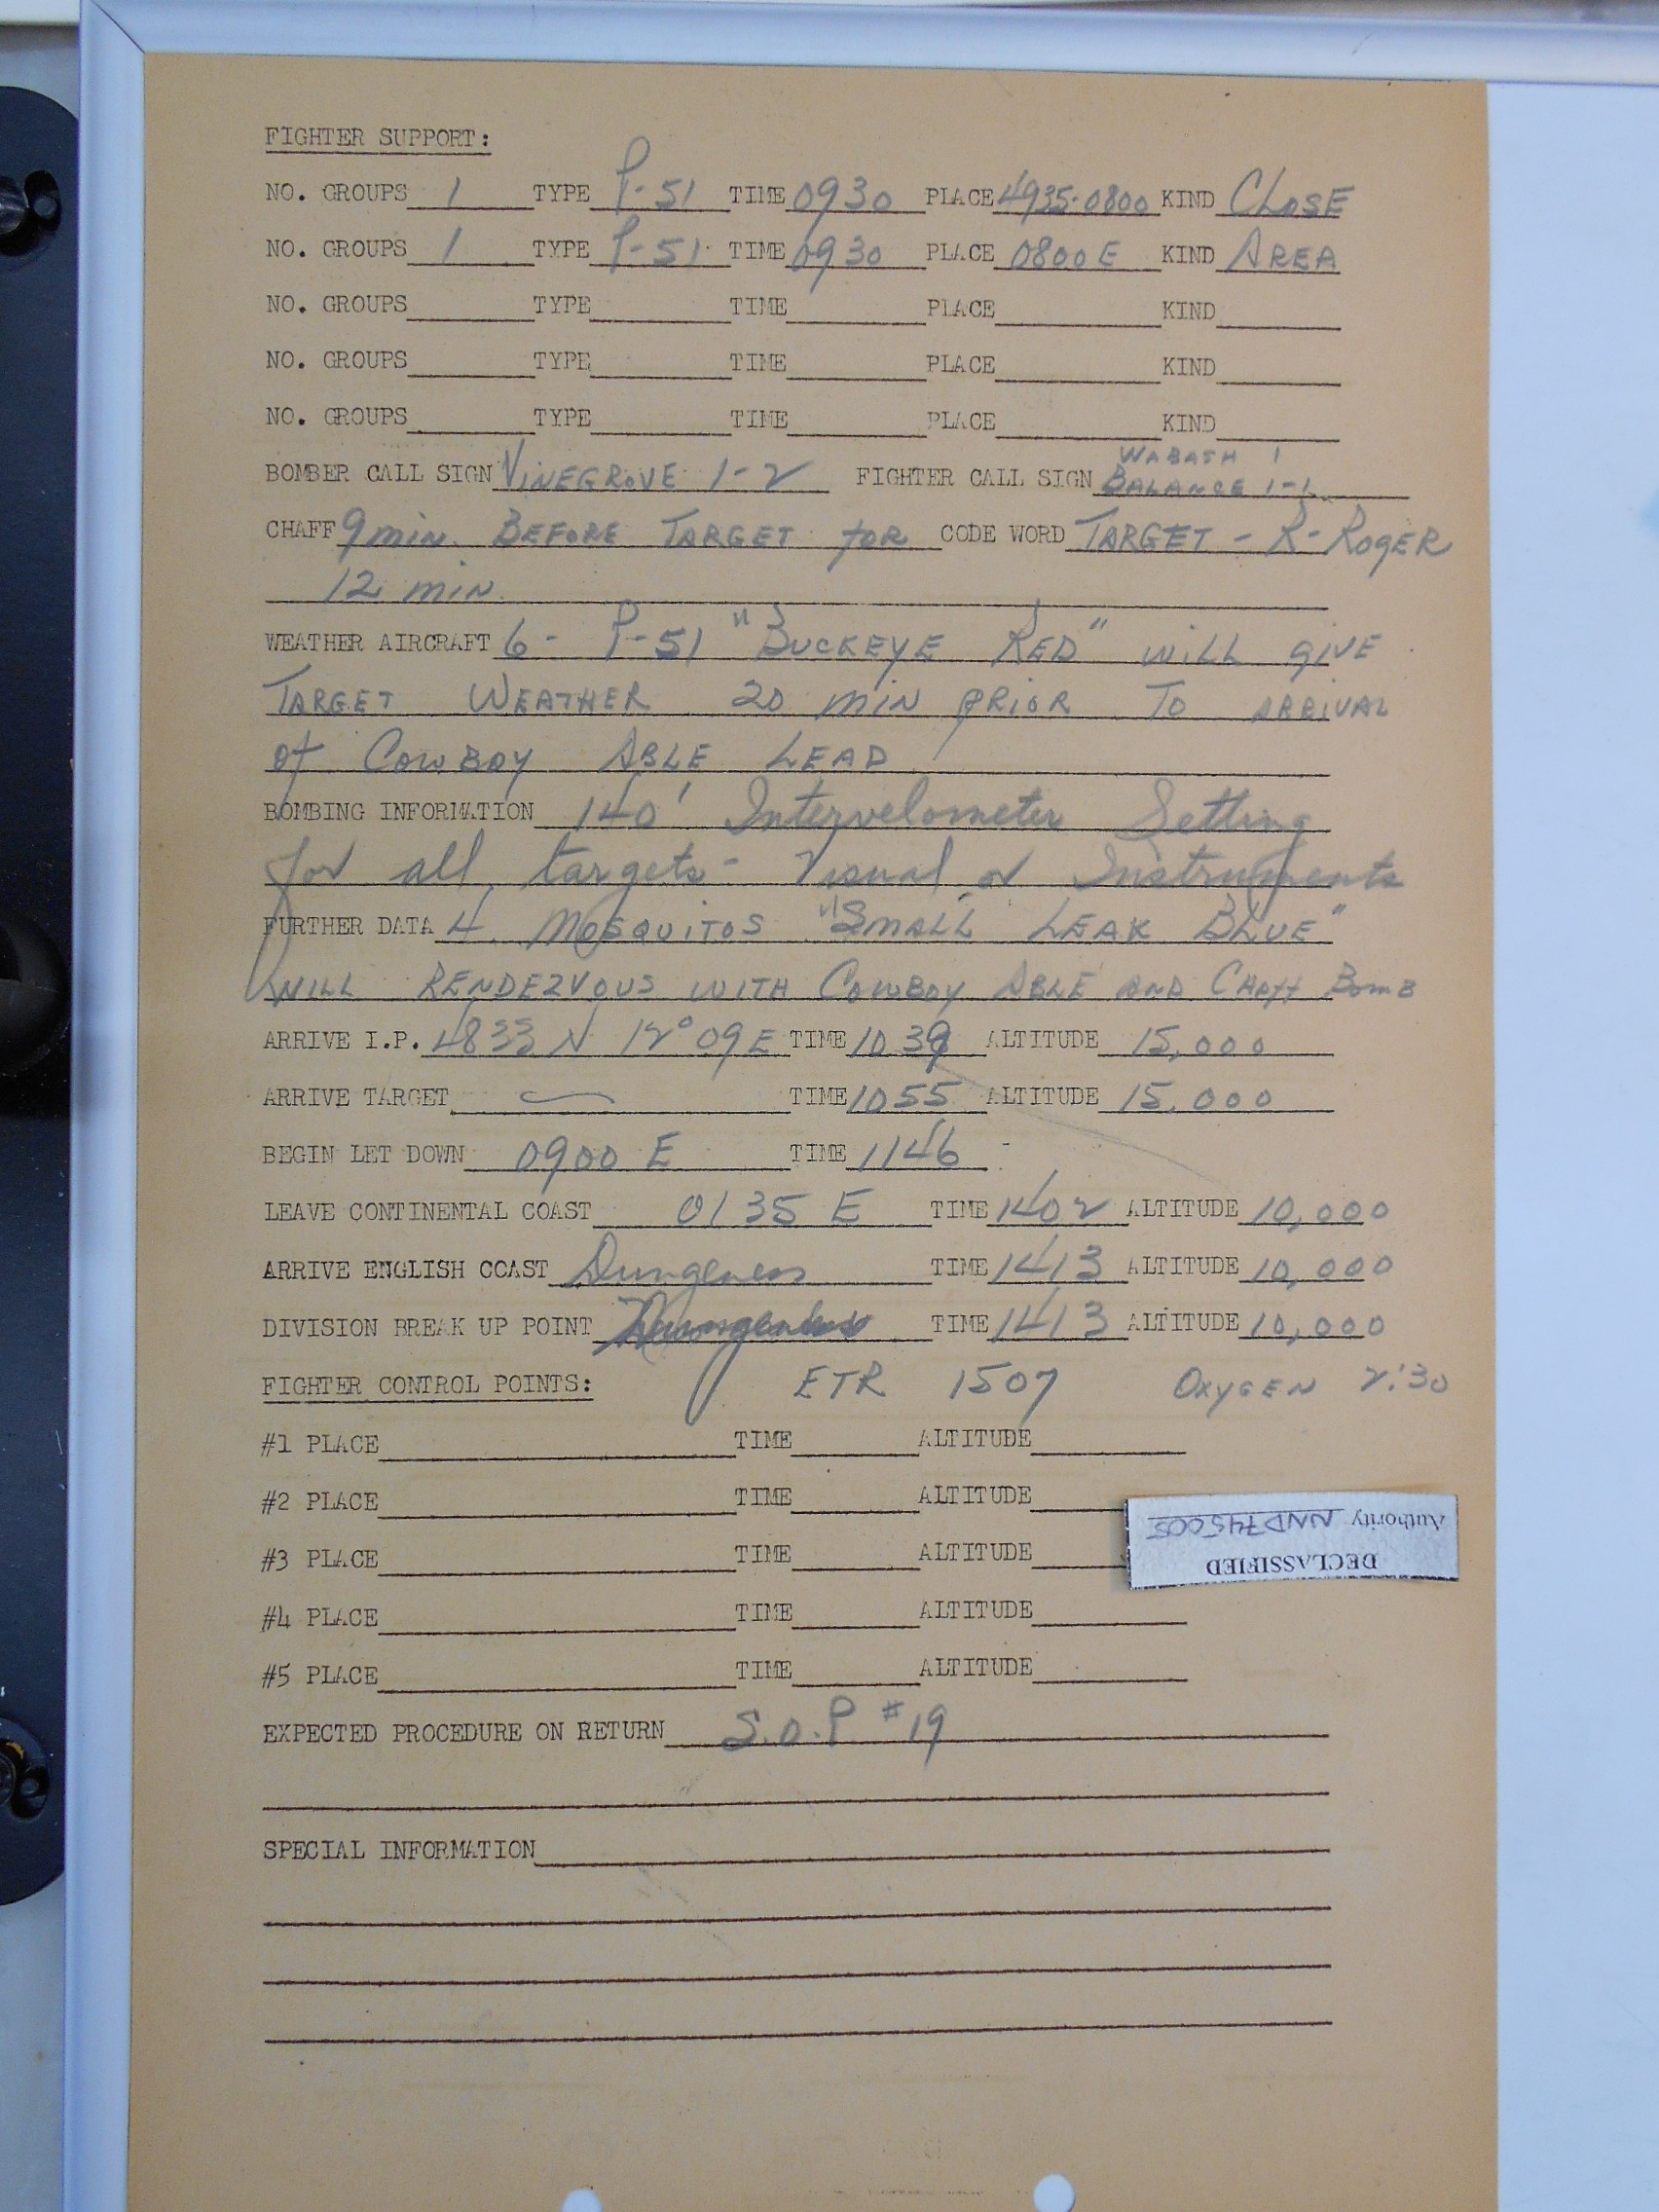 FIGHTER SUPPORT:
NO. GROUPS 1 TYPE P-51 TIME 0930 PLACE 4935-0800 KIND CLOSE
NO. GROUPS 1 TYPE P-51 TIME 0930 PLACE 0800 E KIND AREA
NO. GROUPS TYPE TIME PLACE KIND
NO. GROUPS TYPE TIME PLACE KIND
NO. GROUPS TYPE TIME PLACE KIND
WABASH 1
BOMBER CALL SIGN VINEGROVE 1-2 FIGHTER CALL SIGN BALANCE 1-1
CHAFF 9 min. BEFORE TARGET FOR CODE WORD TARGET - R-ROGER
12 min.
WEATHER AIRCRAFT 6 - P-51 "BUCKEYE RED" WILL GIVE
TARGET WEATHER 20 MIN PRIOR TO ARRIVAL
of COWBOY ABLE LEAD
BOMBING INFORMATION 140' Intervelometer Setting
for all targets - Visual or Instruments
FURTHER DATA 4 MOSQUITOS "SMALL LEAK BLUE"
WILL RENDEZVOUS WITH COWBOY ABLE AND CHAFF BOMB
ARRIVE I.P. 4833 N 12° 09 E TIME 1039 ALTITUDE 15,000
ARRIVE TARGET TIME 1055 ALTITUDE 15,000
BEGIN LET DOWN 0900 E TIME 1146
LEAVE CONTINENTAL COAST 0135 E TIME 1402 ALTITUDE 10,000
ARRIVE ENGLISH COAST Dungeness TIME 1413 ALTITUDE 10,000
DIVISION BREAK UP POINT TIME 1413 ALTITUDE 10,000
FIGHTER CONTROL POINTS: ETR 1507 OXYGEN 2:30
#1 PLACE TIME ALTITUDE
#2 PLACE TIME ALTITUDE
#3 PLACE TIME ALTITUDE
#4 PLACE TIME ALTITUDE
#5 PLACE TIME ALTITUDE
DECLASSIFIED
Authority NND745005
EXPECTED PROCEDURE ON RETURN S.O.P #19
SPECIAL INFORMATION